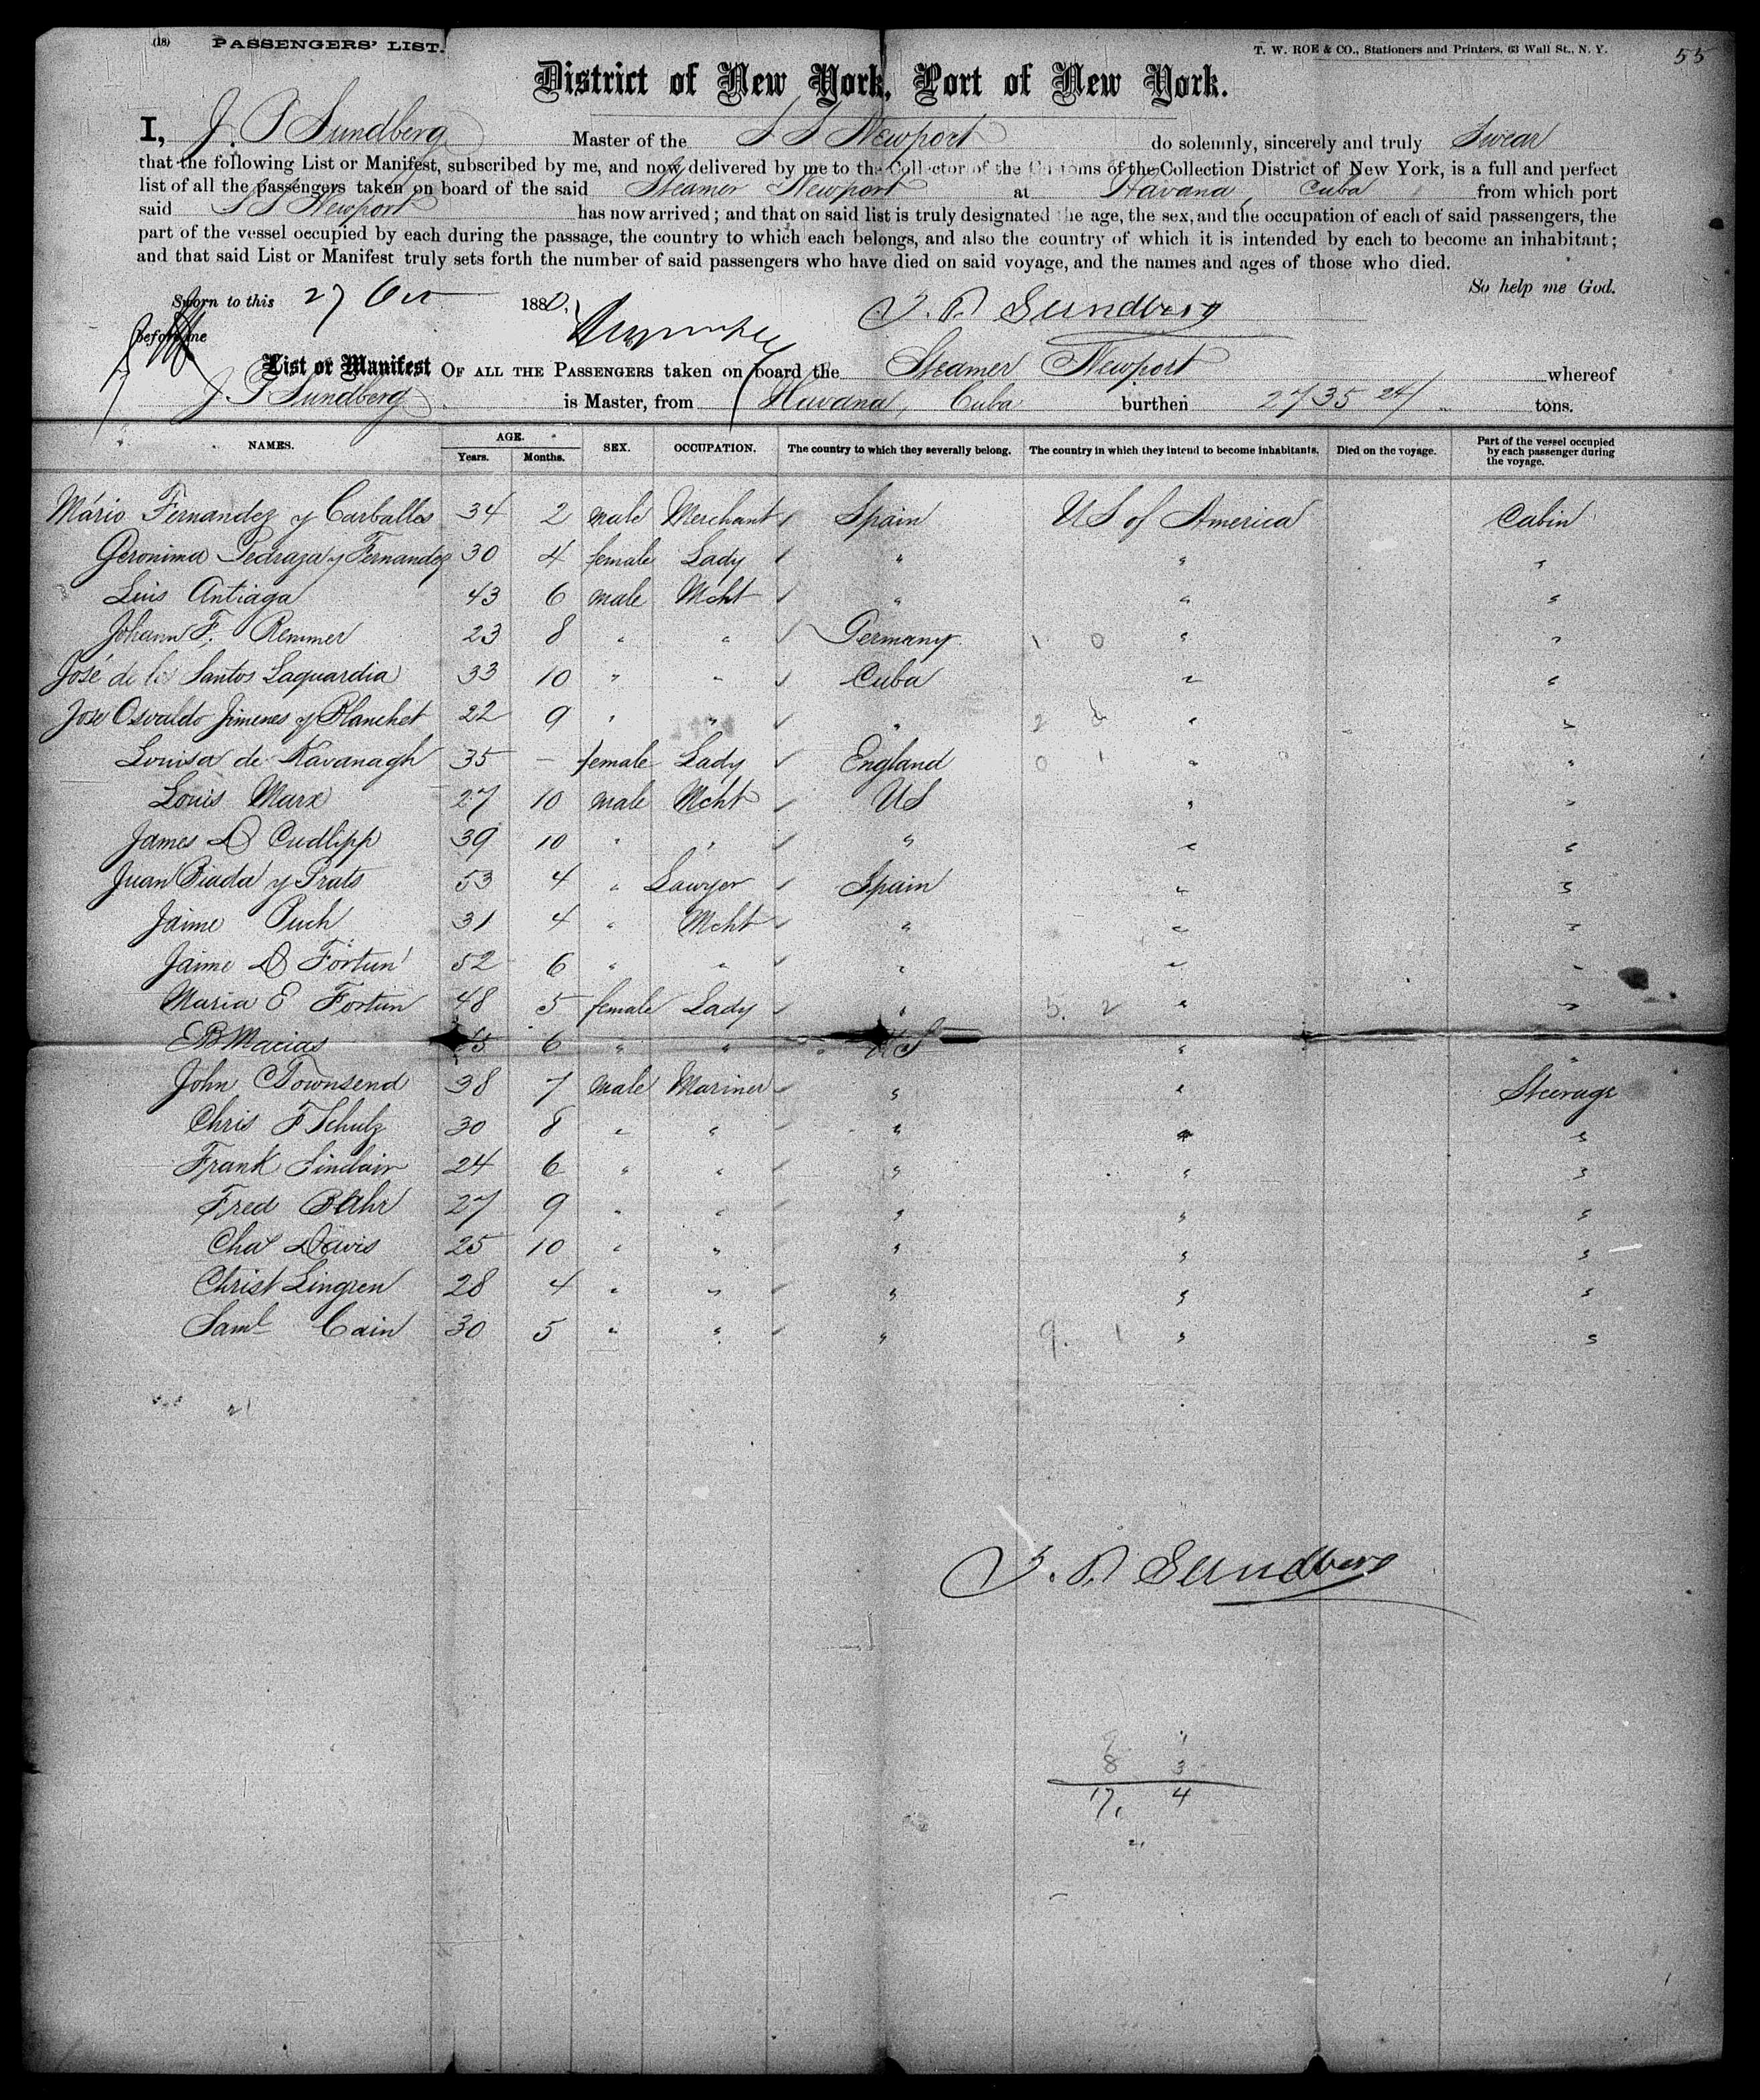 (18) PASSENGERS' LIST. T. W. ROE & CO., Stationers and Printers, 63 Wall St., N. Y. 55
District of New York, Port of New York.
I, J. P Sundberg Master of the S S Newport do solemnly, sincerely and truly Swear
that the following List or Manifest, subscribed by me, and now delivered by me to the Collector of the Customs of the Collection District of New York, is a full and perfect
list of all the passengers taken on board of the said Steamer Newport at Havana, Cuba from which port
said S S Newport has now arrived; and that on said list is truly designated the age, the sex, and the occupation of each of said passengers, the
part of the vessel occupied by each during the passage, the country to which each belongs, and also the country of which it is intended by each to become an inhabitant;
and that said List or Manifest truly sets forth the number of said passengers who have died on said voyage, and the names and ages of those who died.
So help me God.
Sworn to this 27 Oct 1880. J. P. Sundberg
before me
List or Manifest OF ALL THE PASSENGERS taken on board the Steamer Newport whereof
J. P Sundberg is Master, from Havana, Cuba burthen 2735 24/ tons.
NAMES. AGE. Years. Months. SEX. OCCUPATION. The country to which they severally belong. The country in which they intend to become inhabitants. Died on the voyage. Part of the vessel occupied by each passenger during the voyage.
Mário Fernandez y Carballes 34 2 male Merchant Spain US of America Cabin
Geronima Pedraza y Fernandez 30 4 female Lady " " "
Luis Antiaga 43 6 male Mcht " " "
Johann F. Remmer 23 8 " " Germany 1 0 " "
José de los Santos Laguardia 33 10 " " Cuba " "
Jose Osvaldo Jimenes y Blanchet 22 9 " " " 2 " "
Louisa de Kavanagh 35 — female Lady England 0 1 " "
Louis Marx 27 10 male Mcht US " "
James D Cudlipp 39 10 " " " " "
Juan Biada y Prats 53 4 " Lawyer Spain " "
Jaime Puch 31 4 " Mcht " " "
Jaime D Fortun 52 6 " " " " "
Maria E Fortun 48 5 female Lady " 5. 2 " "
E B Macias 6 " " U S " "
John Townsend 38 7 male Mariner " " Steerage
Chris F Schulz 30 8 " " " " "
Frank Sinclair 24 6 " " " " "
Fred Bahr 27 9 " " " " "
Chas Davis 25 10 " " " " "
Christ Lingren 28 4 " " " " "
Saml Cain 30 5 " " " 9. 1 " "
21
J. P. Sundberg
9 1
8 3
17, 4
21